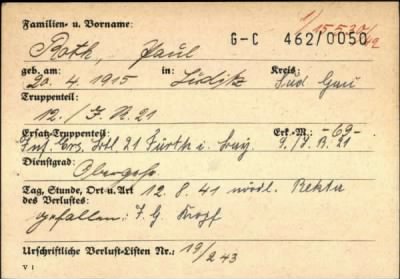 Familien- u. Vorname: 1/15530/42
Roth, Paul G-C 462/0050
geb. am: in: Kreis:
20.4.1915 Luditz Süd Gau
Truppenteil:
12./ J.R. 21
Ersatz-Truppenteil: Erk.-M.: -69-
Inf. Ers. Btl. 21 Fürth i. Bay. 5./J.R. 21
Dienstgrad:
Obergefr.
Tag, Stunde, Ort u. Art 12.8.41 nördl. Rektu
des Verlustes:
gefallen: J.G. Kopf
Urschriftliche Verlust-Listen Nr.: 19/2 43
V 1